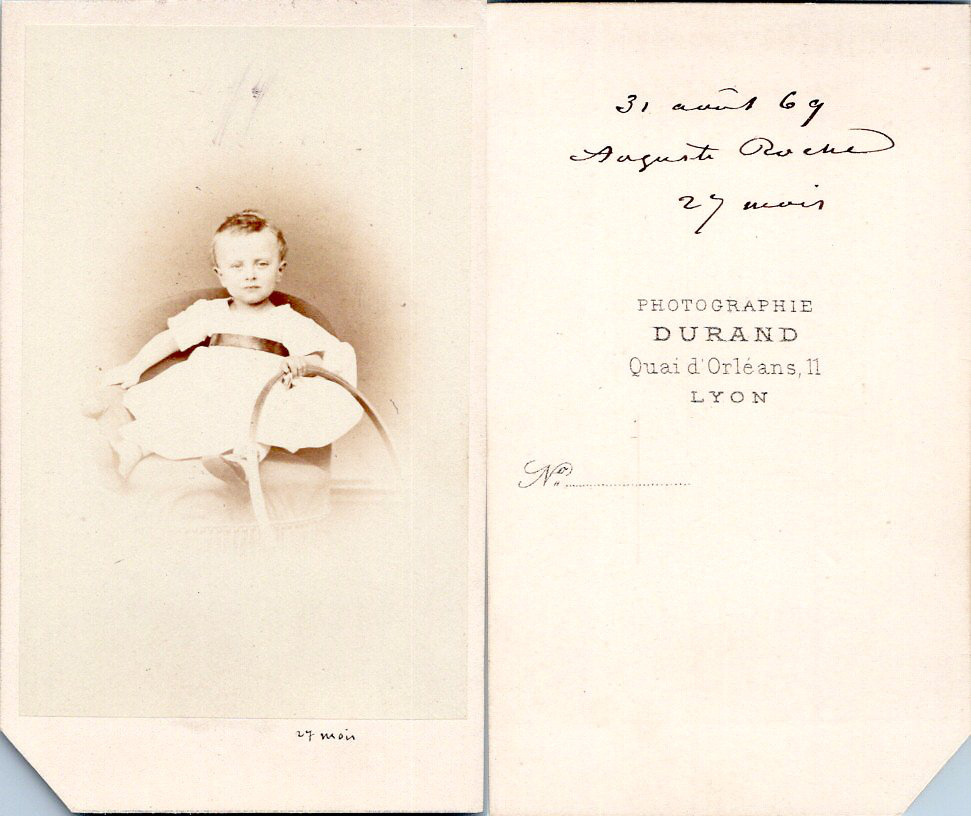 27 mois
31 août 69
Auguste Roche
27 mois
PHOTOGRAPHIE
DURAND
Quai d'Orléans, 11
LYON
No